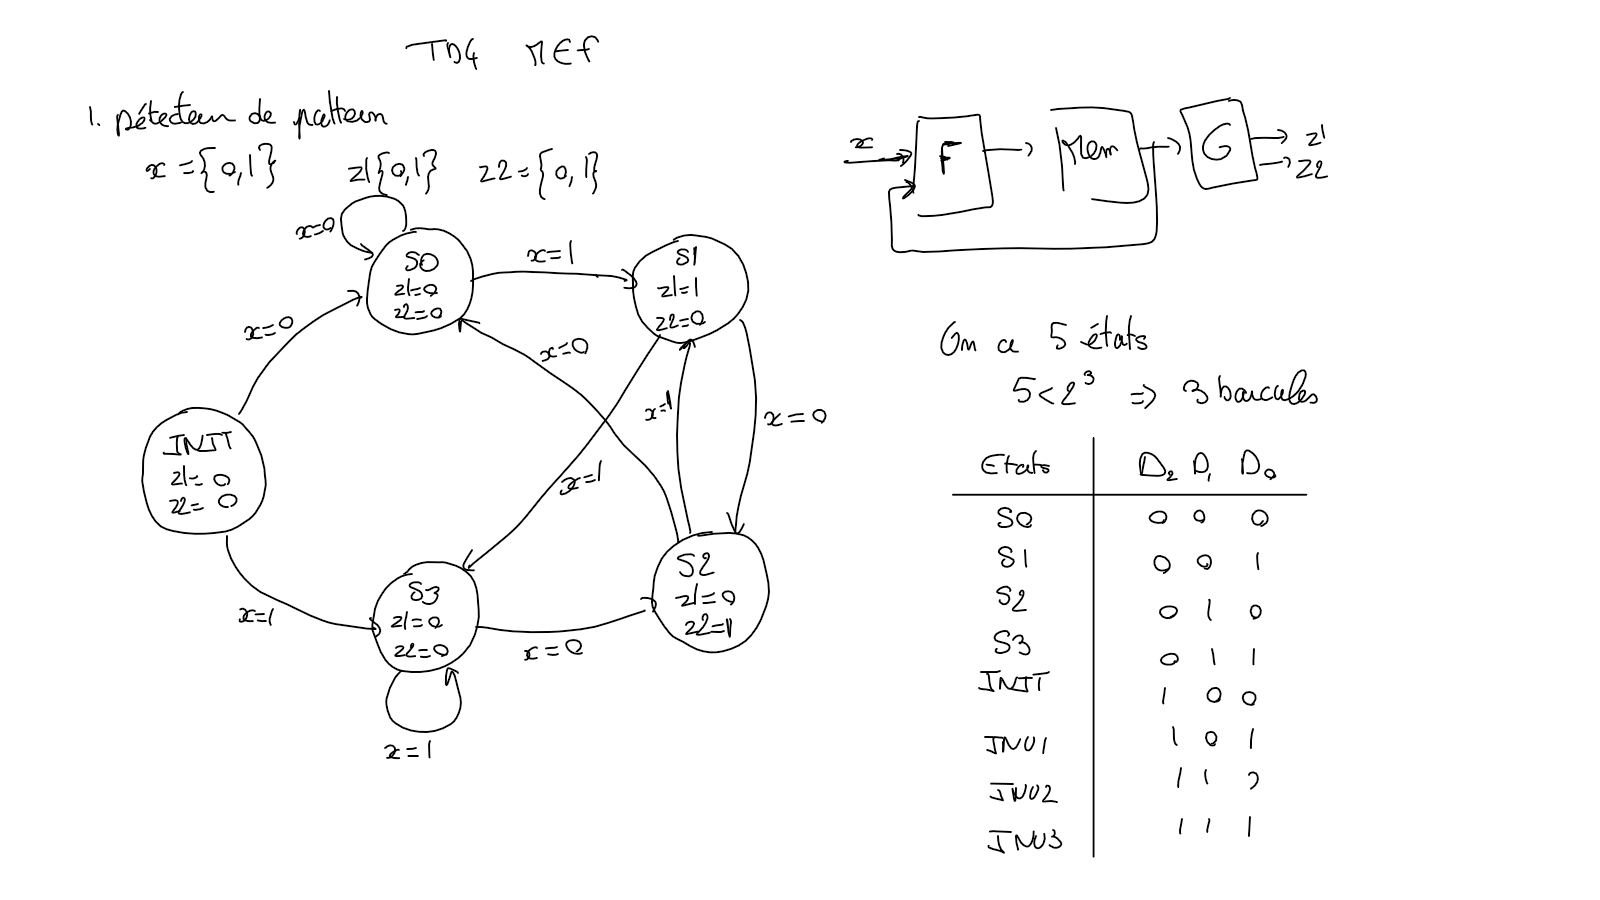 TD4 MEF
1. Détecteur de pattern
x = {0,1} z1{0,1} z2 = {0,1}
x=0
S0
z1=0
z2=0
x=1
S1
z1=1
z2=0
x=0
x=0
x=1
x=0
x=1
INIT
z1=0
z2=0
x=1
S3
z1=0
z2=0
x=0
S2
z1=0
z2=1
x=1
x F Mem G z1
z2
On a 5 états
5<2³ => 3 bascules
Etats D₂ D₁ D₀
S0 0 0 0
S1 0 0 1
S2 0 1 0
S3 0 1 1
INIT 1 0 0
INU1 1 0 1
INU2 1 1 0
INU3 1 1 1